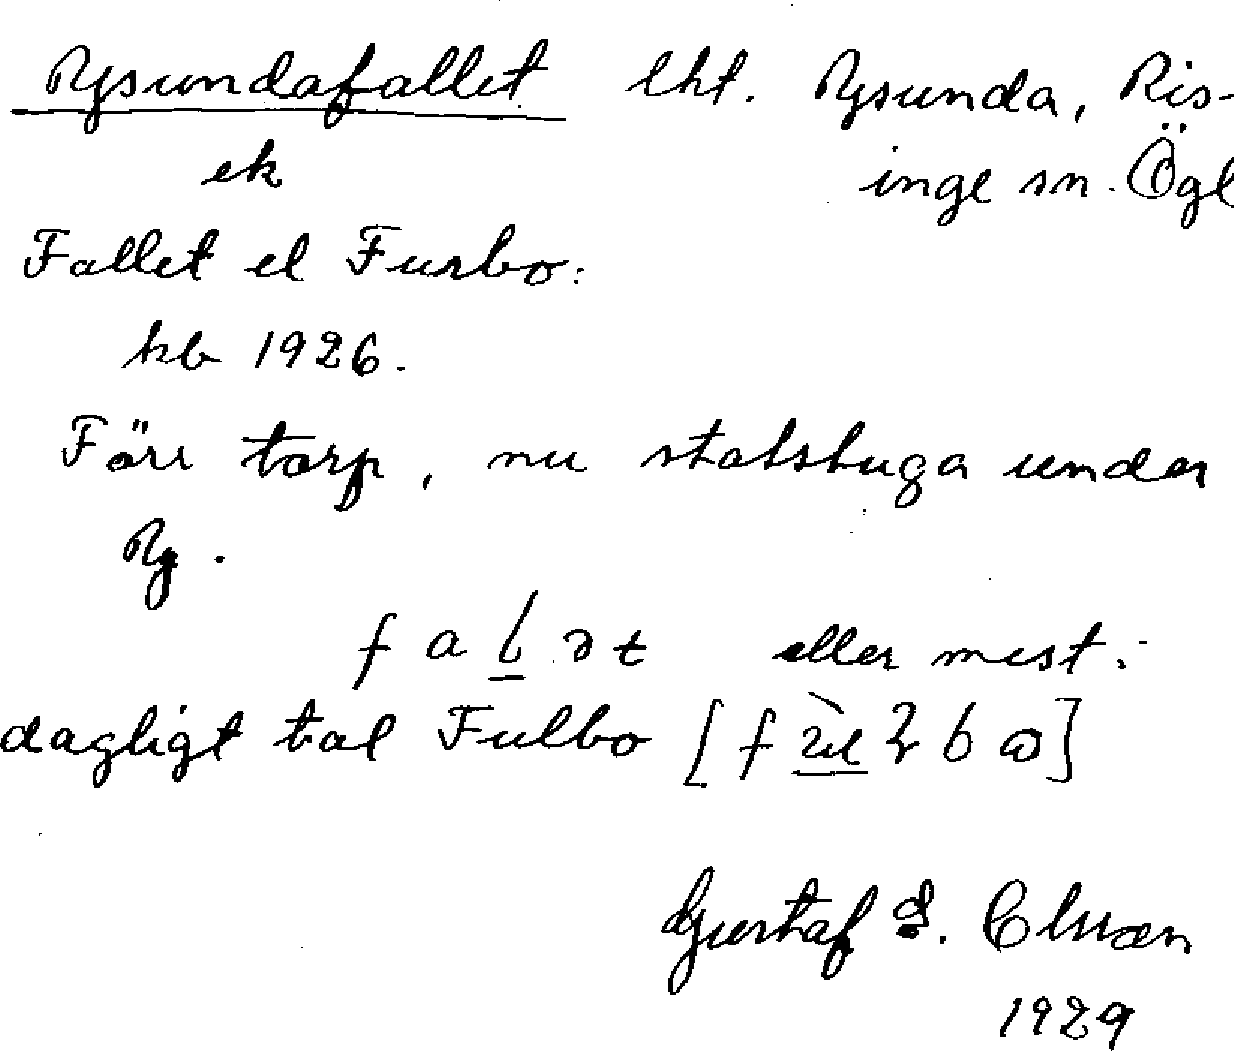 Rysundafallet lht. Rysunda, Ris-
ek inge sn. Ögl
Fallet el Furbo:
kb 1926.
Förr torp, nu statstuga under
Ry.
falət eller mest i
dagligt tal Fulbo
Gustaf
1929